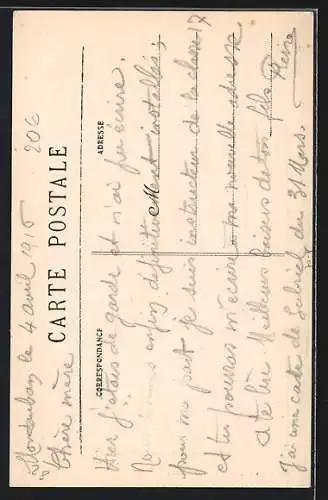 Montauban le 4 avril 1916
206
CARTE POSTALE
Chère mère
CORRESPONDANCE
ADRESSE
Hier j'étais de garde et n'ai pu écrire.
Nous sommes enfin définitivement installés;
pour ma part je suis instructeur de la classe 17
et tu pourras m'écrire à ma nouvelle adresse
à te lire Meilleurs baisers de ton fils Pierre
J'ai une carte de Gabriel du 31 Mars.